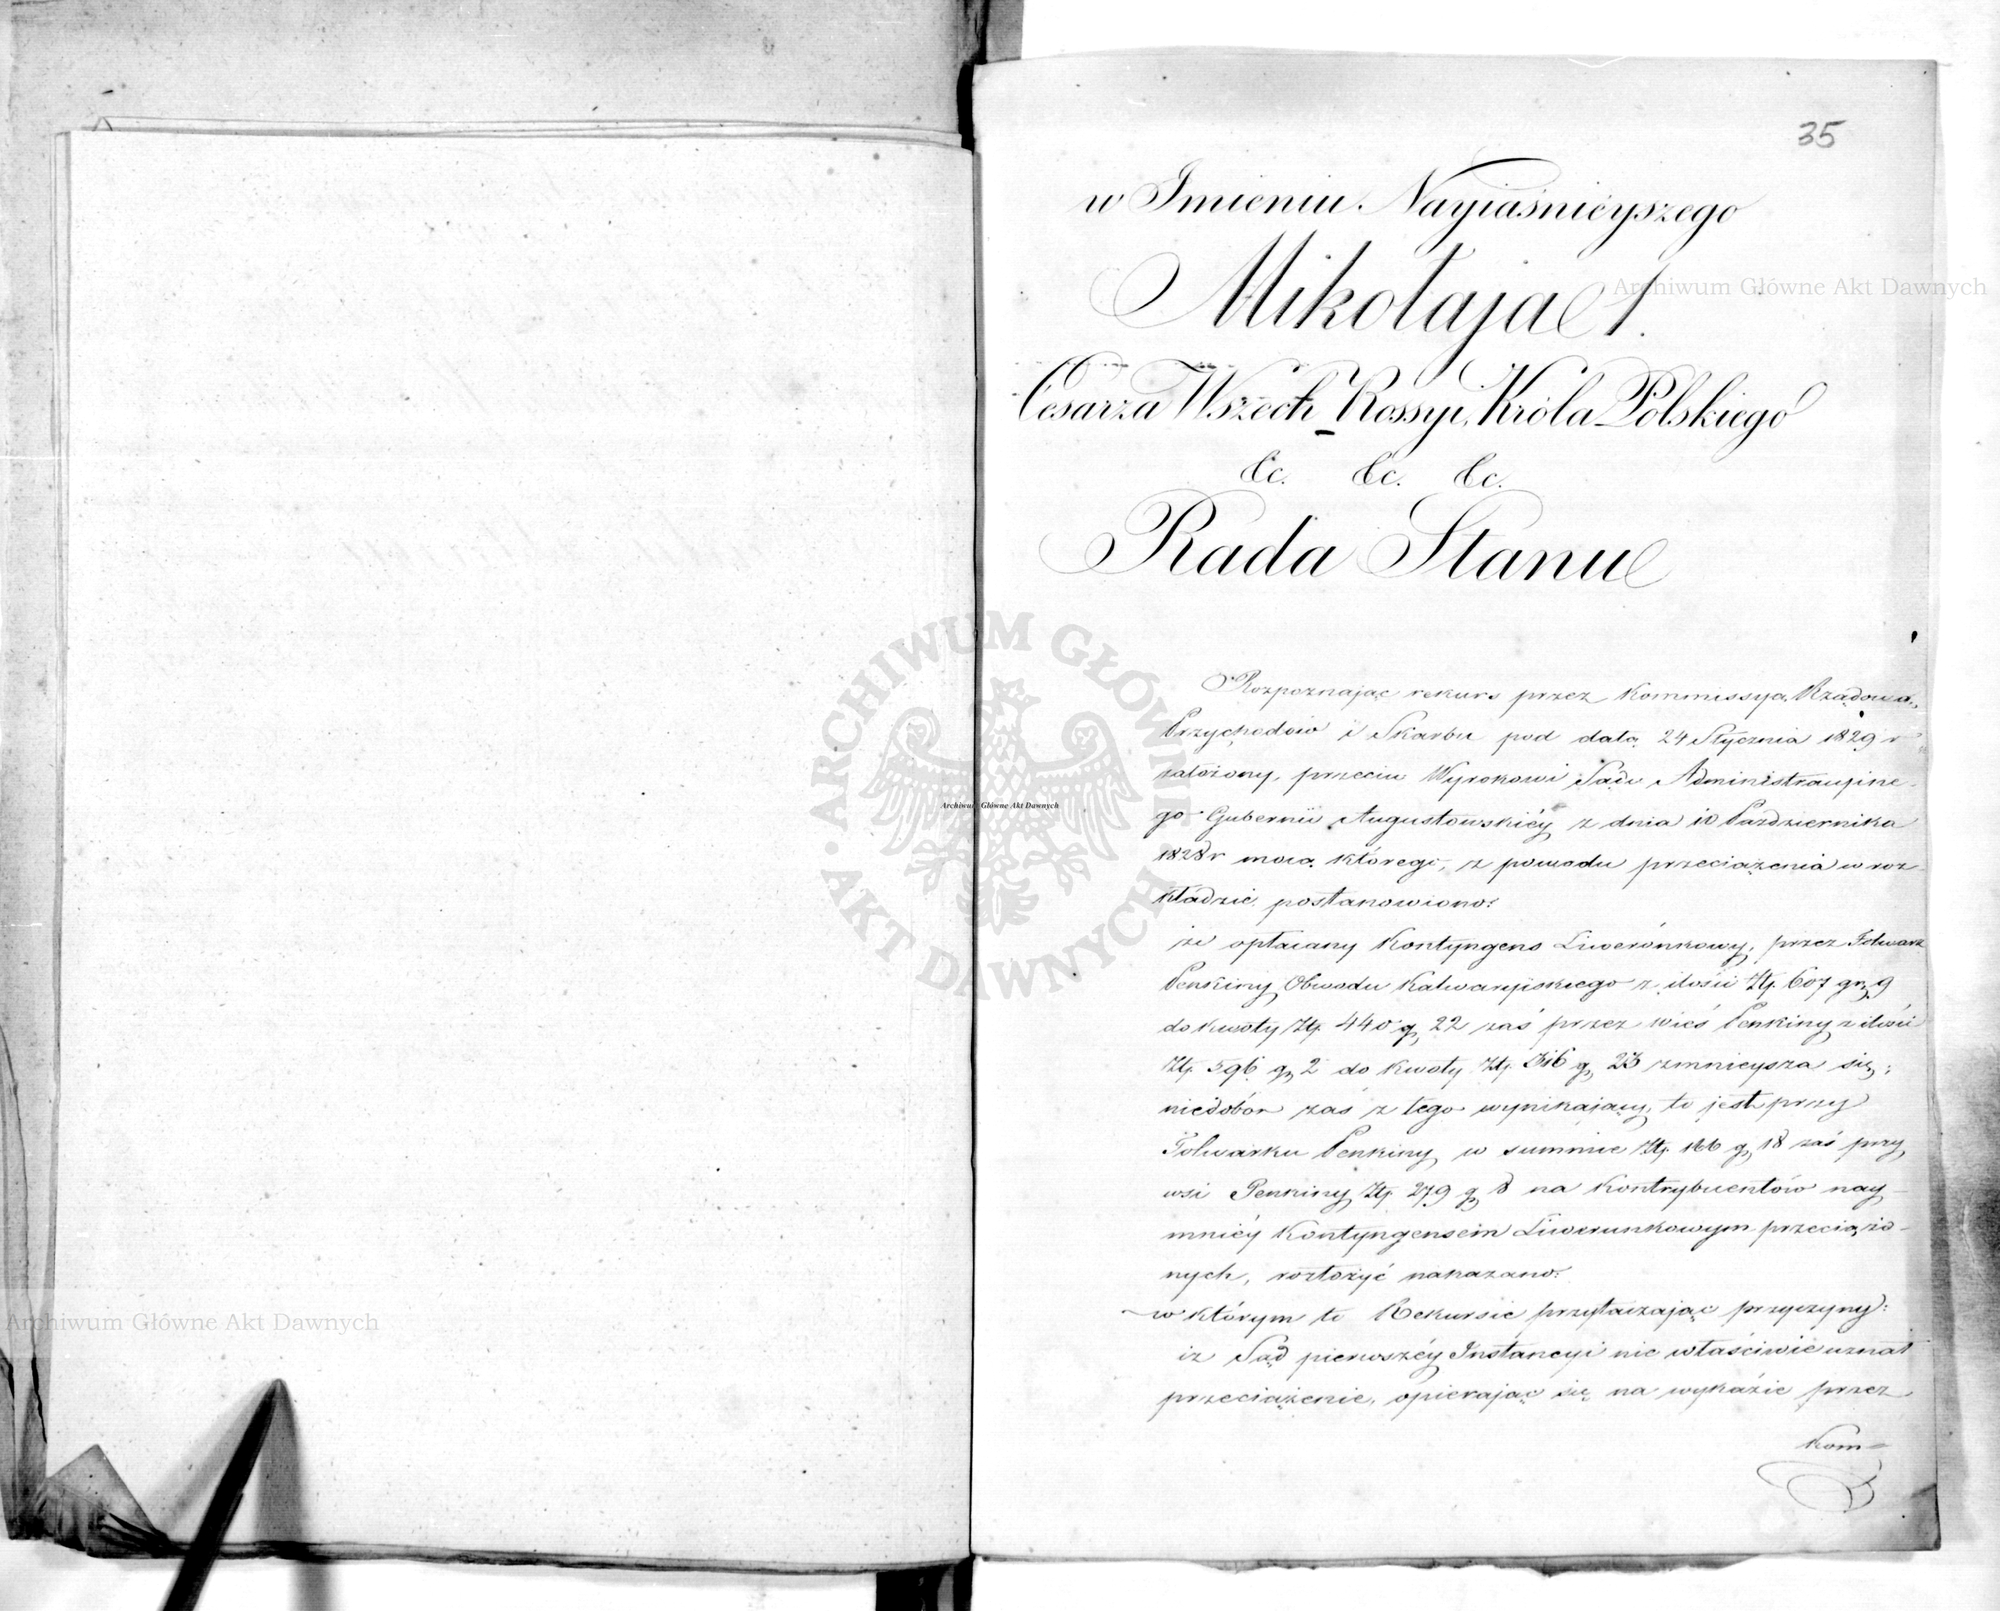 35
w Imieniu Nayiaśnieyszego
Mikołaja 1.
Cesarza Wszech-Rossyi, Króla Polskiego
&c. &c. &c.
Rada Stanu
Rozpoznając rekurs przez Kommissyą Rządową
Przychodów i Skarbu pod datą 24 Stycznia 1829 r
założony, przeciw Wyrokowi Sądu Administracyjne-
go Gubernii Augustowskiéy z dnia 10 Października
1828 r mocą którego, z powodu przeciążenia w roz-
kładzie postanowiono:
że opłacany Kontyngens Liwerunkowy, przez Folwark
Penkiny Obwodu Kalwaryiskiego z ilości Złp. 607 gr 9
do kwoty Złp. 440 gr 22 zaś przez wieś Penkiny z ilości
Złp. 596 gr 2 do kwoty Złp. 316 gr 23 zmnieysza się;
niedobór zaś z tego wynikający, to jest przy
Folwarku Penkiny w summie Złp. 166 gr 18 zaś przy
wsi Penkiny Złp. 279 gr 8 na Kontrybuentów nay-
mniéy Kontyngensem Liwerunkowym przeciążo-
nych, rozłożyć nakazano:
w którym to Rekursie przytaczając przyczyny:
iż Sąd pierwszéy Instancyi nie właściwie uznał
przeciążenie, opierając się na wykazie przez
Kom-
Archiwum Główne Akt Dawnych
Archiwum Główne Akt Dawnych
Archiwum Główne Akt Dawnych
ARCHIWUM GŁÓWNE · AKT DAWNYCH ·